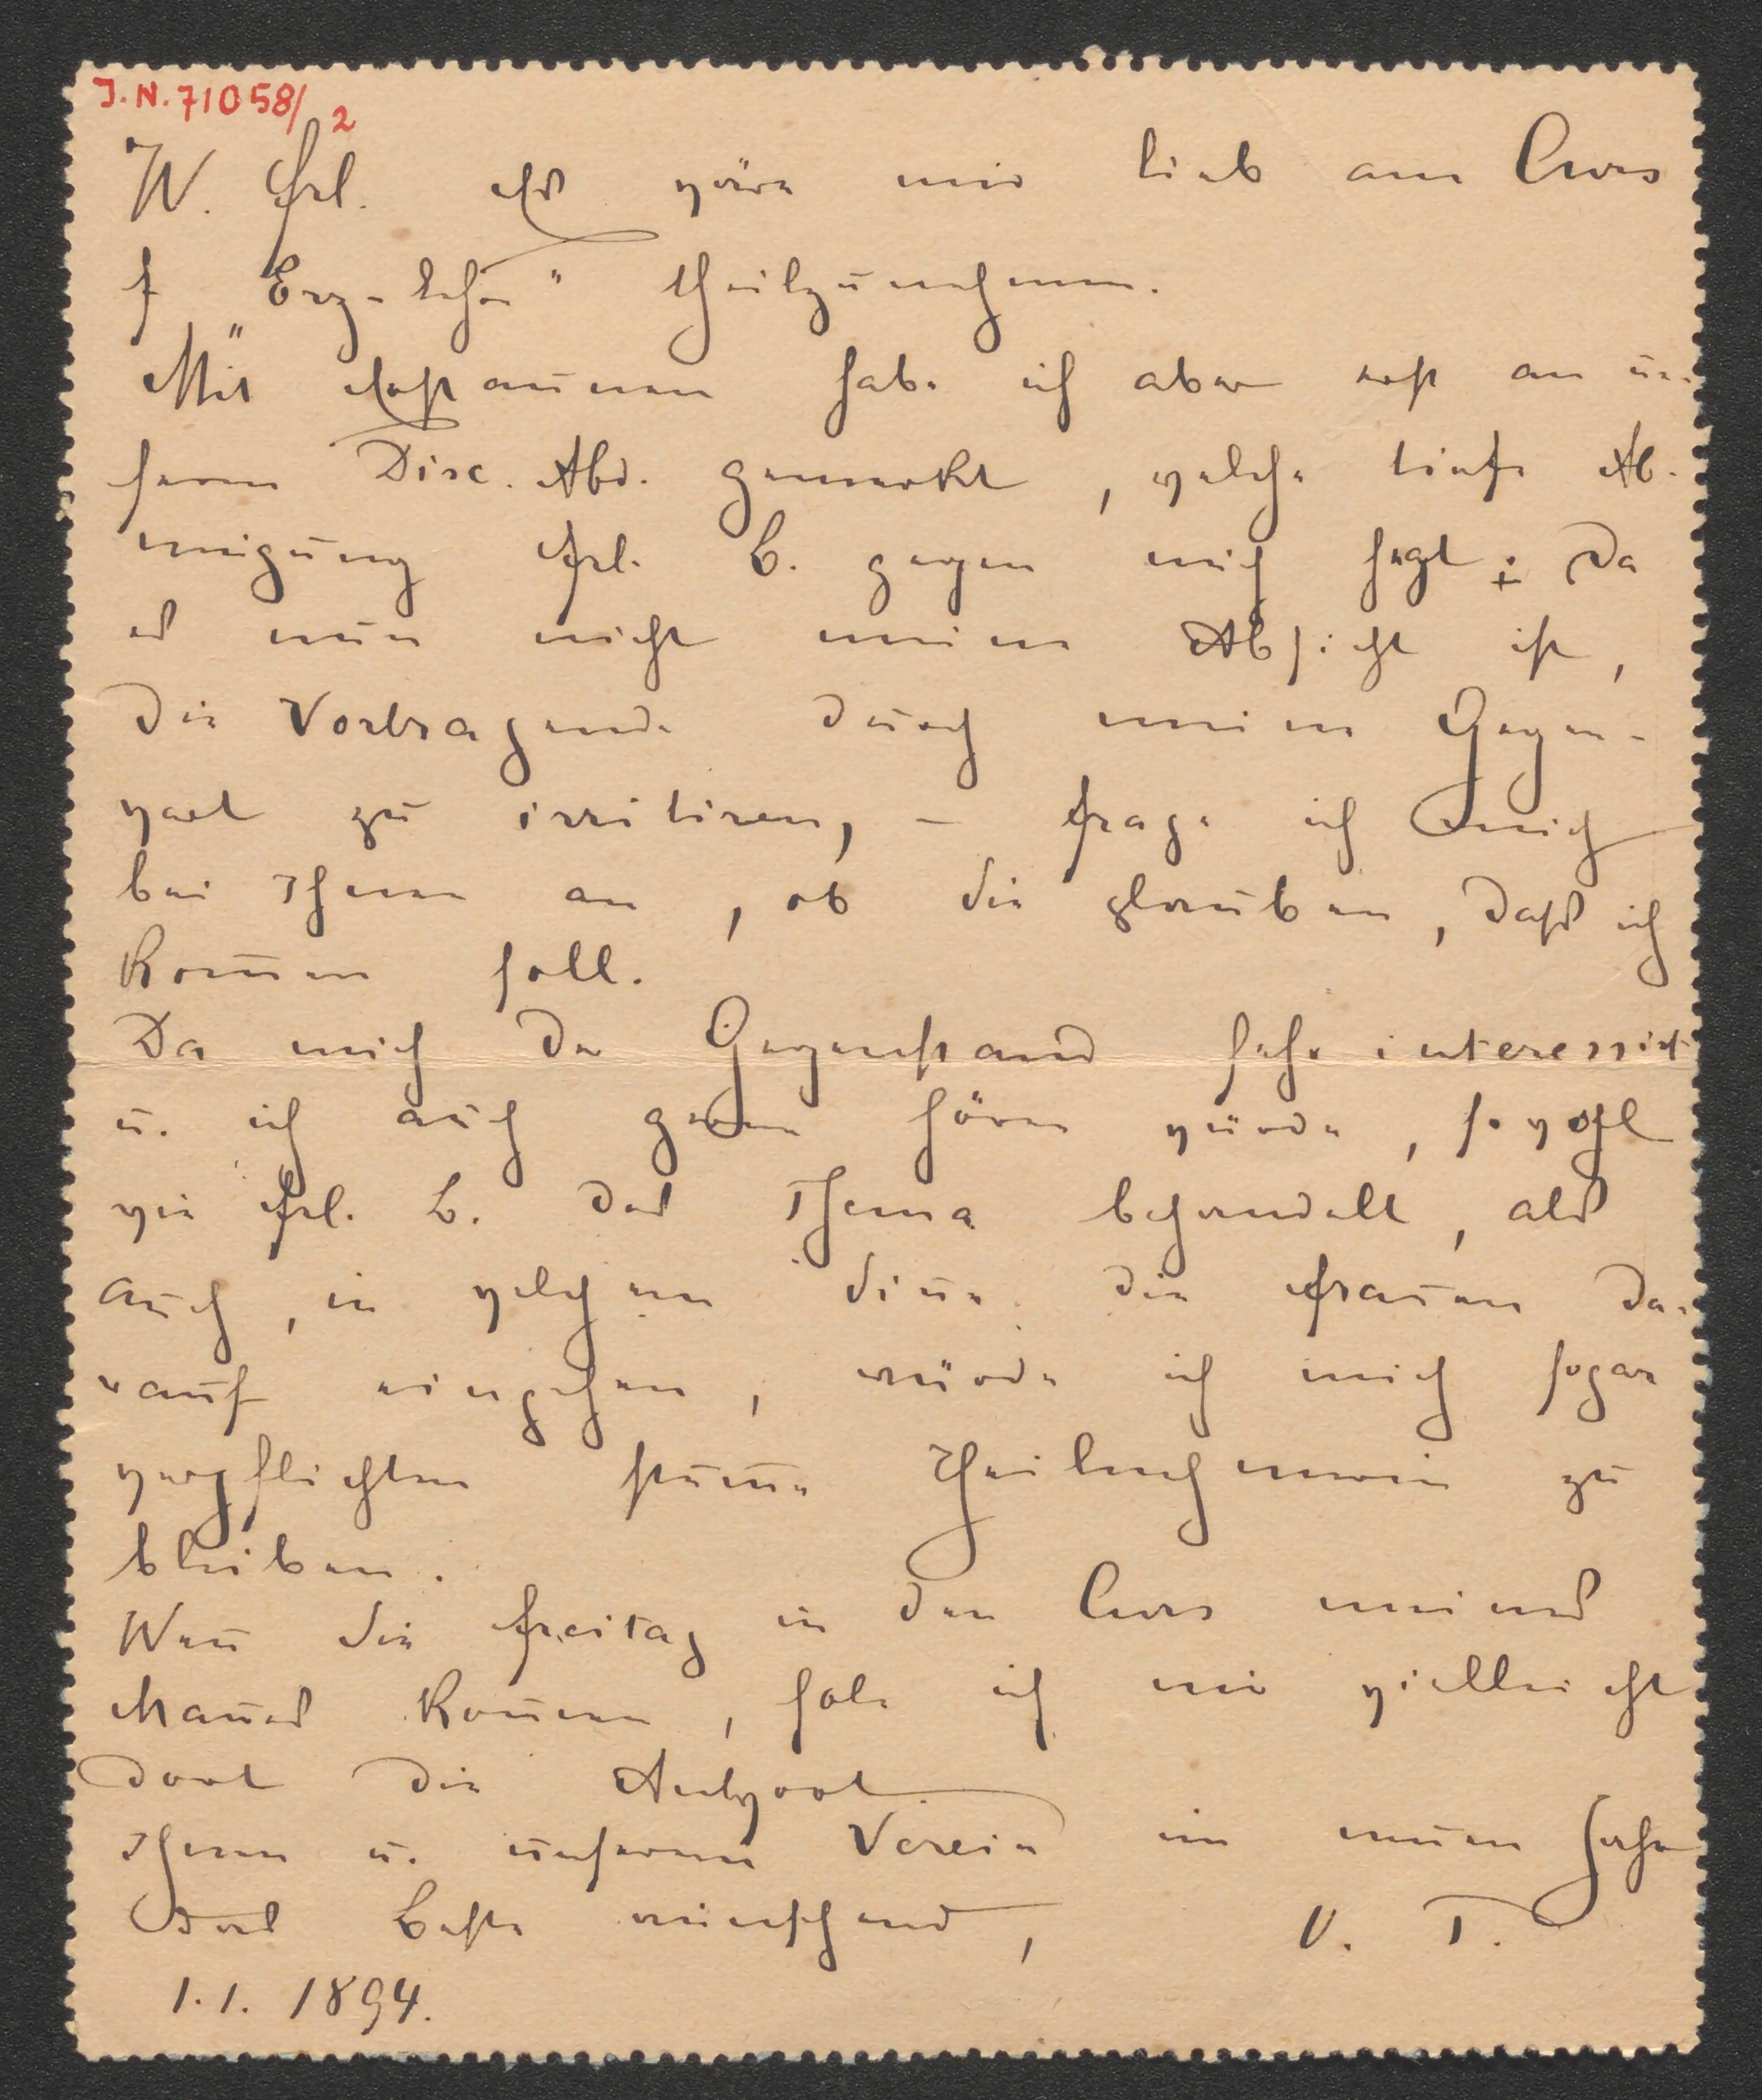 J.N. 71058/2
W. Frl. Es wäre mir lieb am Curs
f „Erz-Lehre“ theilzunehmen.
Mit Erstaunen habe ich aber erst an un-
serm Disc. Abd. gemerkt, welche tiefe Ab-
neigung Frl. B. gegen mich hegt; Da
es nun nicht meine Absicht ist,
die Vortragende durch meine Gegen-
wart zu irritiren, – frage ich mich
bei Ihnen an, ob Sie glauben, daß ich
kom̅en soll.
Da mich der Gegenstand sehr interessirt
u. ich auch gerne hören würde, sowohl
wie Frl. B. das Thema behandelt, als
auch, in welchem Sinne die Frauen da-
rauf eingehen, würde ich mich sogar
verpflichten stum̅e Theilnehmerin zu
bleiben.
Wen̅ Sie Freitag in den Curs meines
Manes kom̅en, hole ich mir vielleicht
dort die Antwort
Ihnen u. unserem Verein im neuen Jahre
das Beste wünschend, V. T.
1.1. 1894.